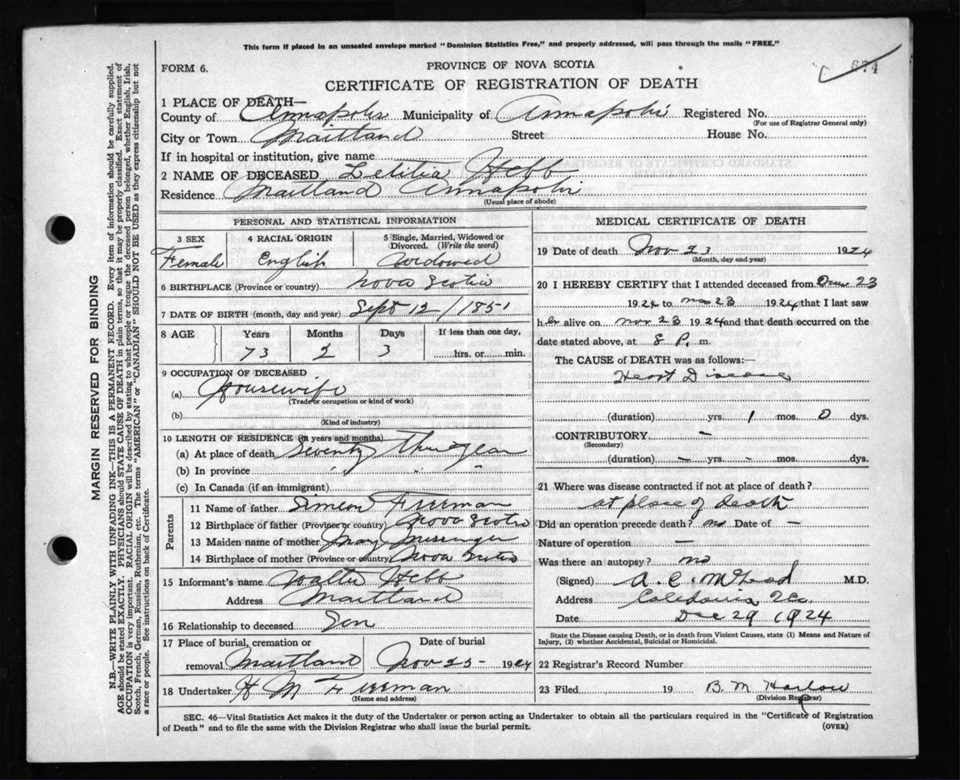 This form if placed in an unsealed envelope marked "Dominion Statistics Free," and properly addressed, will pass through the mails "FREE."
FORM 6.
PROVINCE OF NOVA SCOTIA
674
CERTIFICATE OF REGISTRATION OF DEATH
1 PLACE OF DEATH—
County of Annapolis Municipality of Annapolis Registered No.
(For use of Registrar General only)
City or Town Maitland Street House No.
If in hospital or institution, give name
2 NAME OF DECEASED Letitia Hebb
Residence Maitland Annapolis
(Usual place of abode)
PERSONAL AND STATISTICAL INFORMATION
3 SEX 4 RACIAL ORIGIN 5 Single, Married, Widowed or
Divorced. (Write the word)
Female English Widowed
6 BIRTHPLACE (Province or country) Nova Scotia
7 DATE OF BIRTH (month, day and year) Sept 12/1851
8 AGE Years Months Days If less than one day,
73 2 3 hrs. or min.
9 OCCUPATION OF DECEASED
(a) Housewife
(Trade or occupation or kind of work)
(b)
(Kind of industry)
10 LENGTH OF RESIDENCE (in years and months)
(a) At place of death Seventy Three year
(b) In province " " "
(c) In Canada (if an immigrant)
Parents
11 Name of father Simeon Freeman
12 Birthplace of father (Province or country) Nova Scotia
13 Maiden name of mother Mary Messenger
14 Birthplace of mother (Province or country) Nova Scotia
15 Informant's name Walter Hebb
Address Maitland
16 Relationship to deceased Son
17 Place of burial, cremation or Date of burial
removal Maitland Nov 25- 1924
18 Undertaker H M Freeman
(Name and address)
MEDICAL CERTIFICATE OF DEATH
19 Date of death Nov 23 1924
(Month, day and year)
20 I HEREBY CERTIFY that I attended deceased from 23
1924 to Nov 23 1924 that I last saw
her alive on Nov 23 1924 and that death occurred on the
date stated above, at 8 P. m.
The CAUSE OF DEATH was as follows:—
Heart Disease
(duration) yrs. 1 mos. 0 dys.
CONTRIBUTORY —
(Secondary)
(duration) — yrs. — mos. dys.
21 Where was disease contracted if not at place of death?
at place of death
Did an operation precede death? no Date of —
Nature of operation —
Was there an autopsy? no
(Signed) A. C. McLeod M.D.
Address Caledonia
Date Dec 29 1924
State the Disease causing Death, or in death from Violent Causes, state (1) Means and Nature of
Injury, (2) whether Accidental, Suicidal or Homicidal.
22 Registrar's Record Number
23 Filed 19 B. M Harlow
(Division Registrar)
SEC. 46—Vital Statistics Act makes it the duty of the Undertaker or person acting as Undertaker to obtain all the particulars required in the "Certificate of Registration
of Death" and to file the same with the Division Registrar who shall issue the burial permit. (OVER)
MARGIN RESERVED FOR BINDING
N.B.—WRITE PLAINLY WITH UNFADING INK—THIS IS A PERMANENT RECORD. Every item of information should be carefully supplied.
AGE should be stated EXACTLY. PHYSICIANS should STATE CAUSE OF DEATH in plain terms, so that it may be properly classified. Exact statement of
OCCUPATION is very important. RACIAL ORIGIN will be described by stating to what people or tongue the deceased person belonged, whether English, Irish,
Scotch, French, German, Russian, Ruthenian, etc. The terms "AMERICAN" or "CANADIAN" SHOULD NOT BE USED as they express citizenship but not
a race or people. See instructions on back of Certificate.